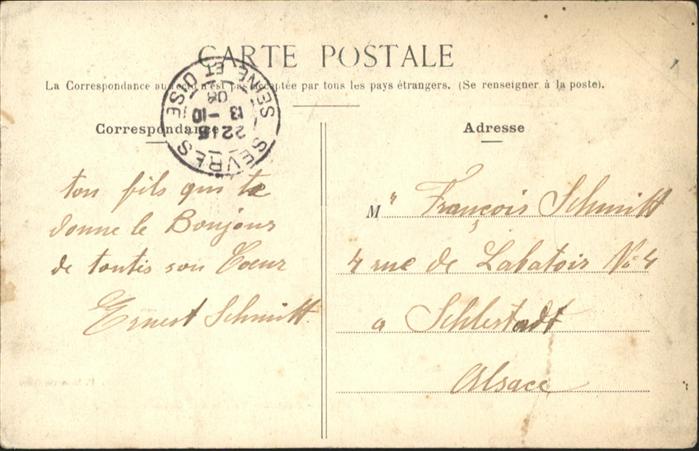 CARTE POSTALE
La Correspondance au n'est pas acceptée par tous les pays étrangers. (Se renseigner à la poste).
SEVRES SEINE ET OISE
22 15
13 - 10
Correspondance
ton fils qui te
donne le Bonjour
de toutis son Coeur
Ernest Schmitt
Adresse
M" François Schmitt
4 rue de Labatoir No 4
a Schlestadt
Alsace